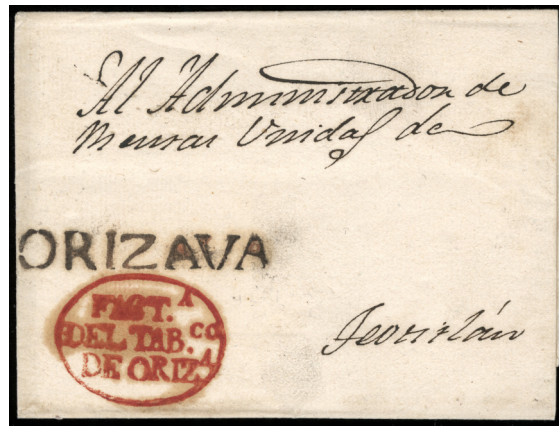 Al Administrador de
Rentas Unidas de
ORIZAVA
FACT.A
DEL TAB.CO
DE ORIZ.A
Teotitlán